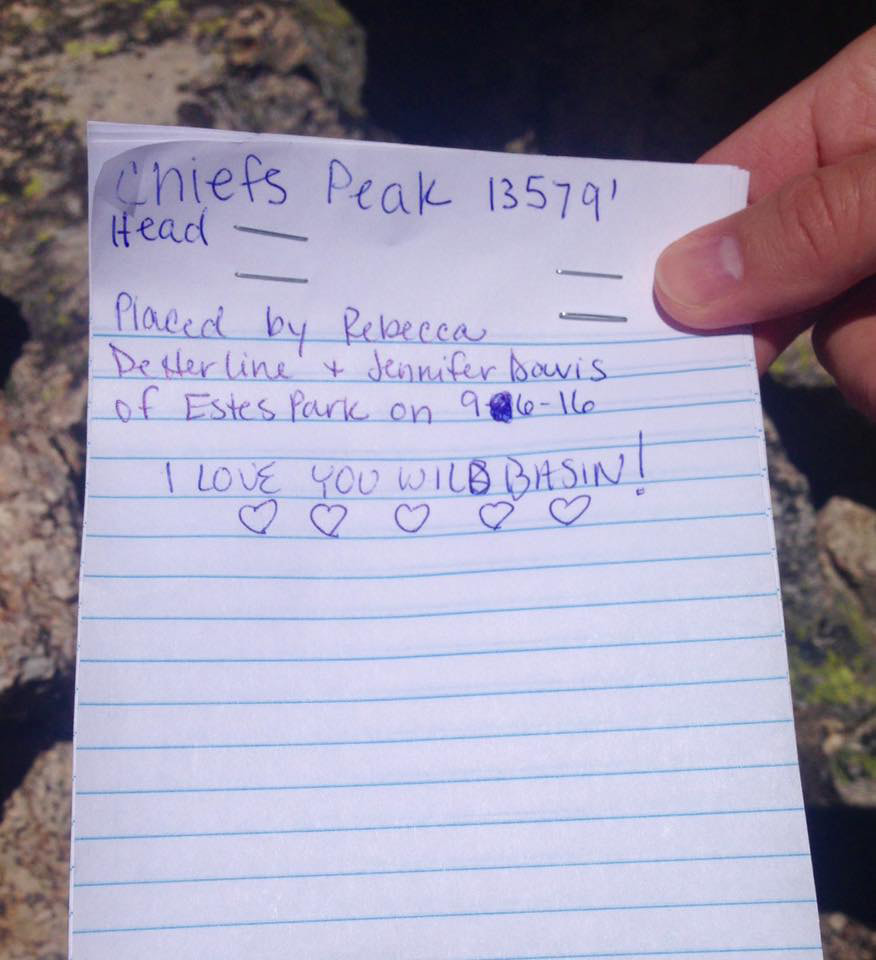 Chiefs Peak 13579'
Head
Placed by Rebecca
Detterline + Jennifer Davis
of Estes Park on 9-6-16
I LOVE YOU WILD BASIN!
♡ ♡ ♡ ♡ ♡